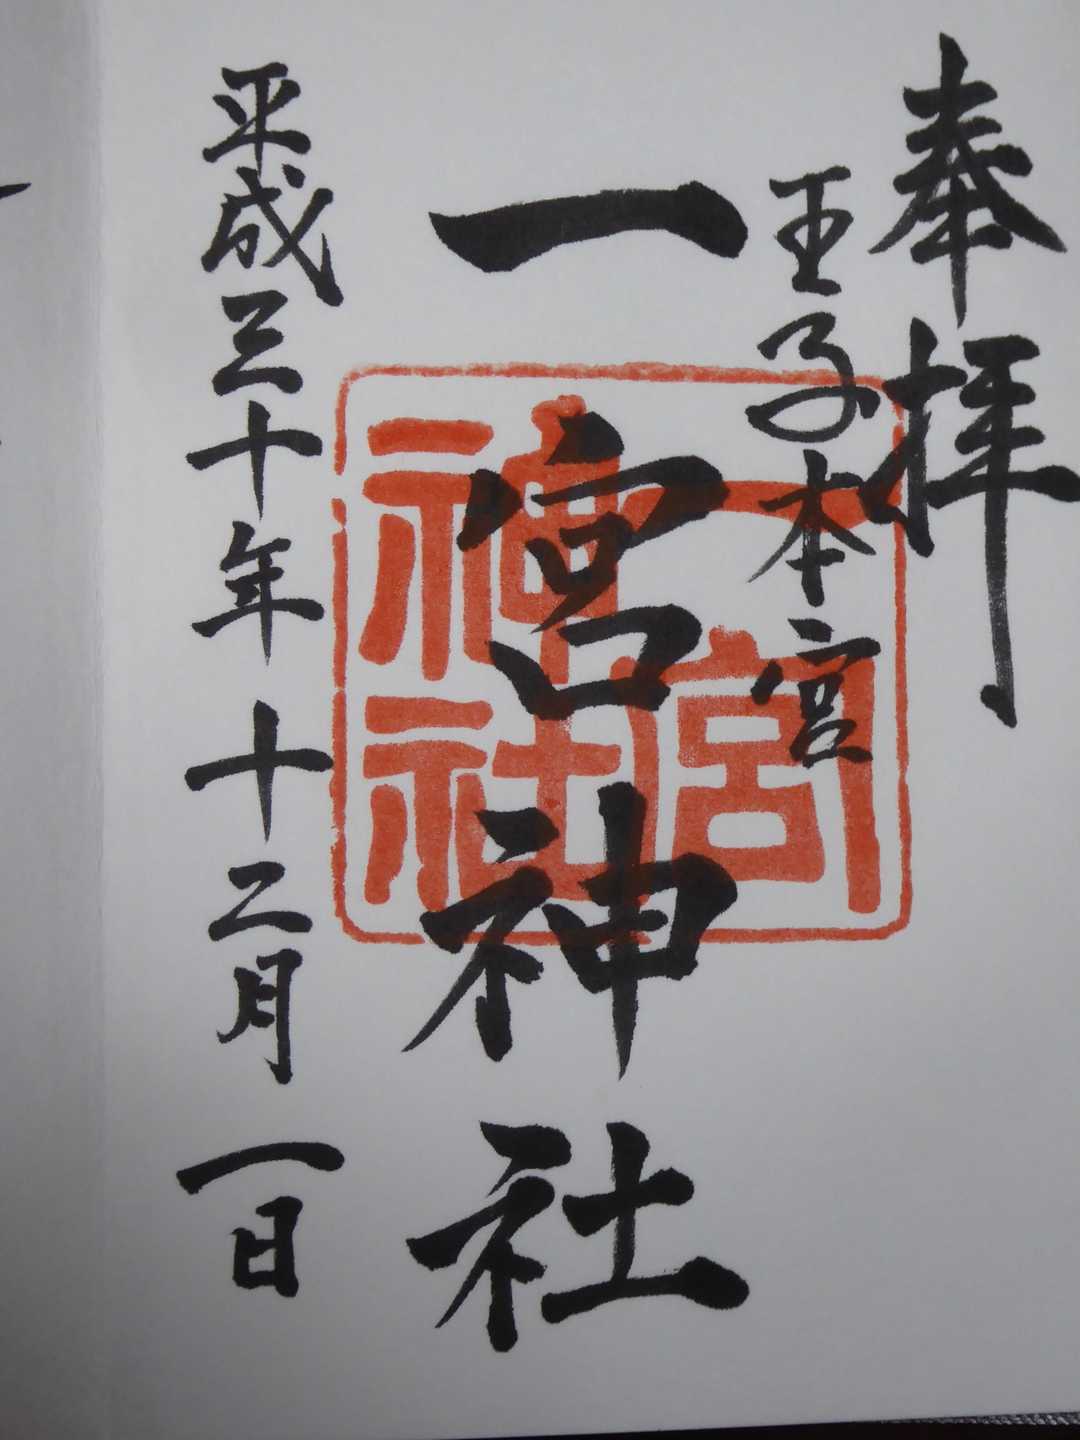 奉拝
王子本宮
一宮神社
一宮
神社
平成三十年十二月一日